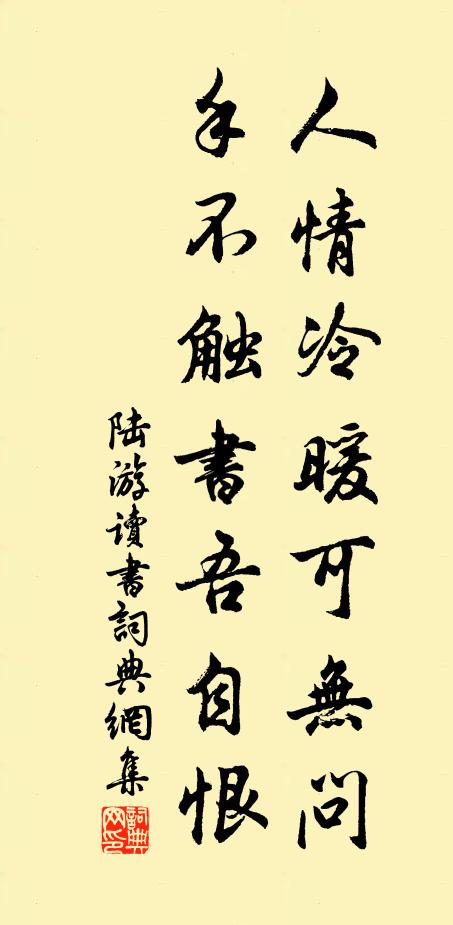 人情冷暖可無問
手不触書吾自恨
陆游讀書詞典網集
詞典网印